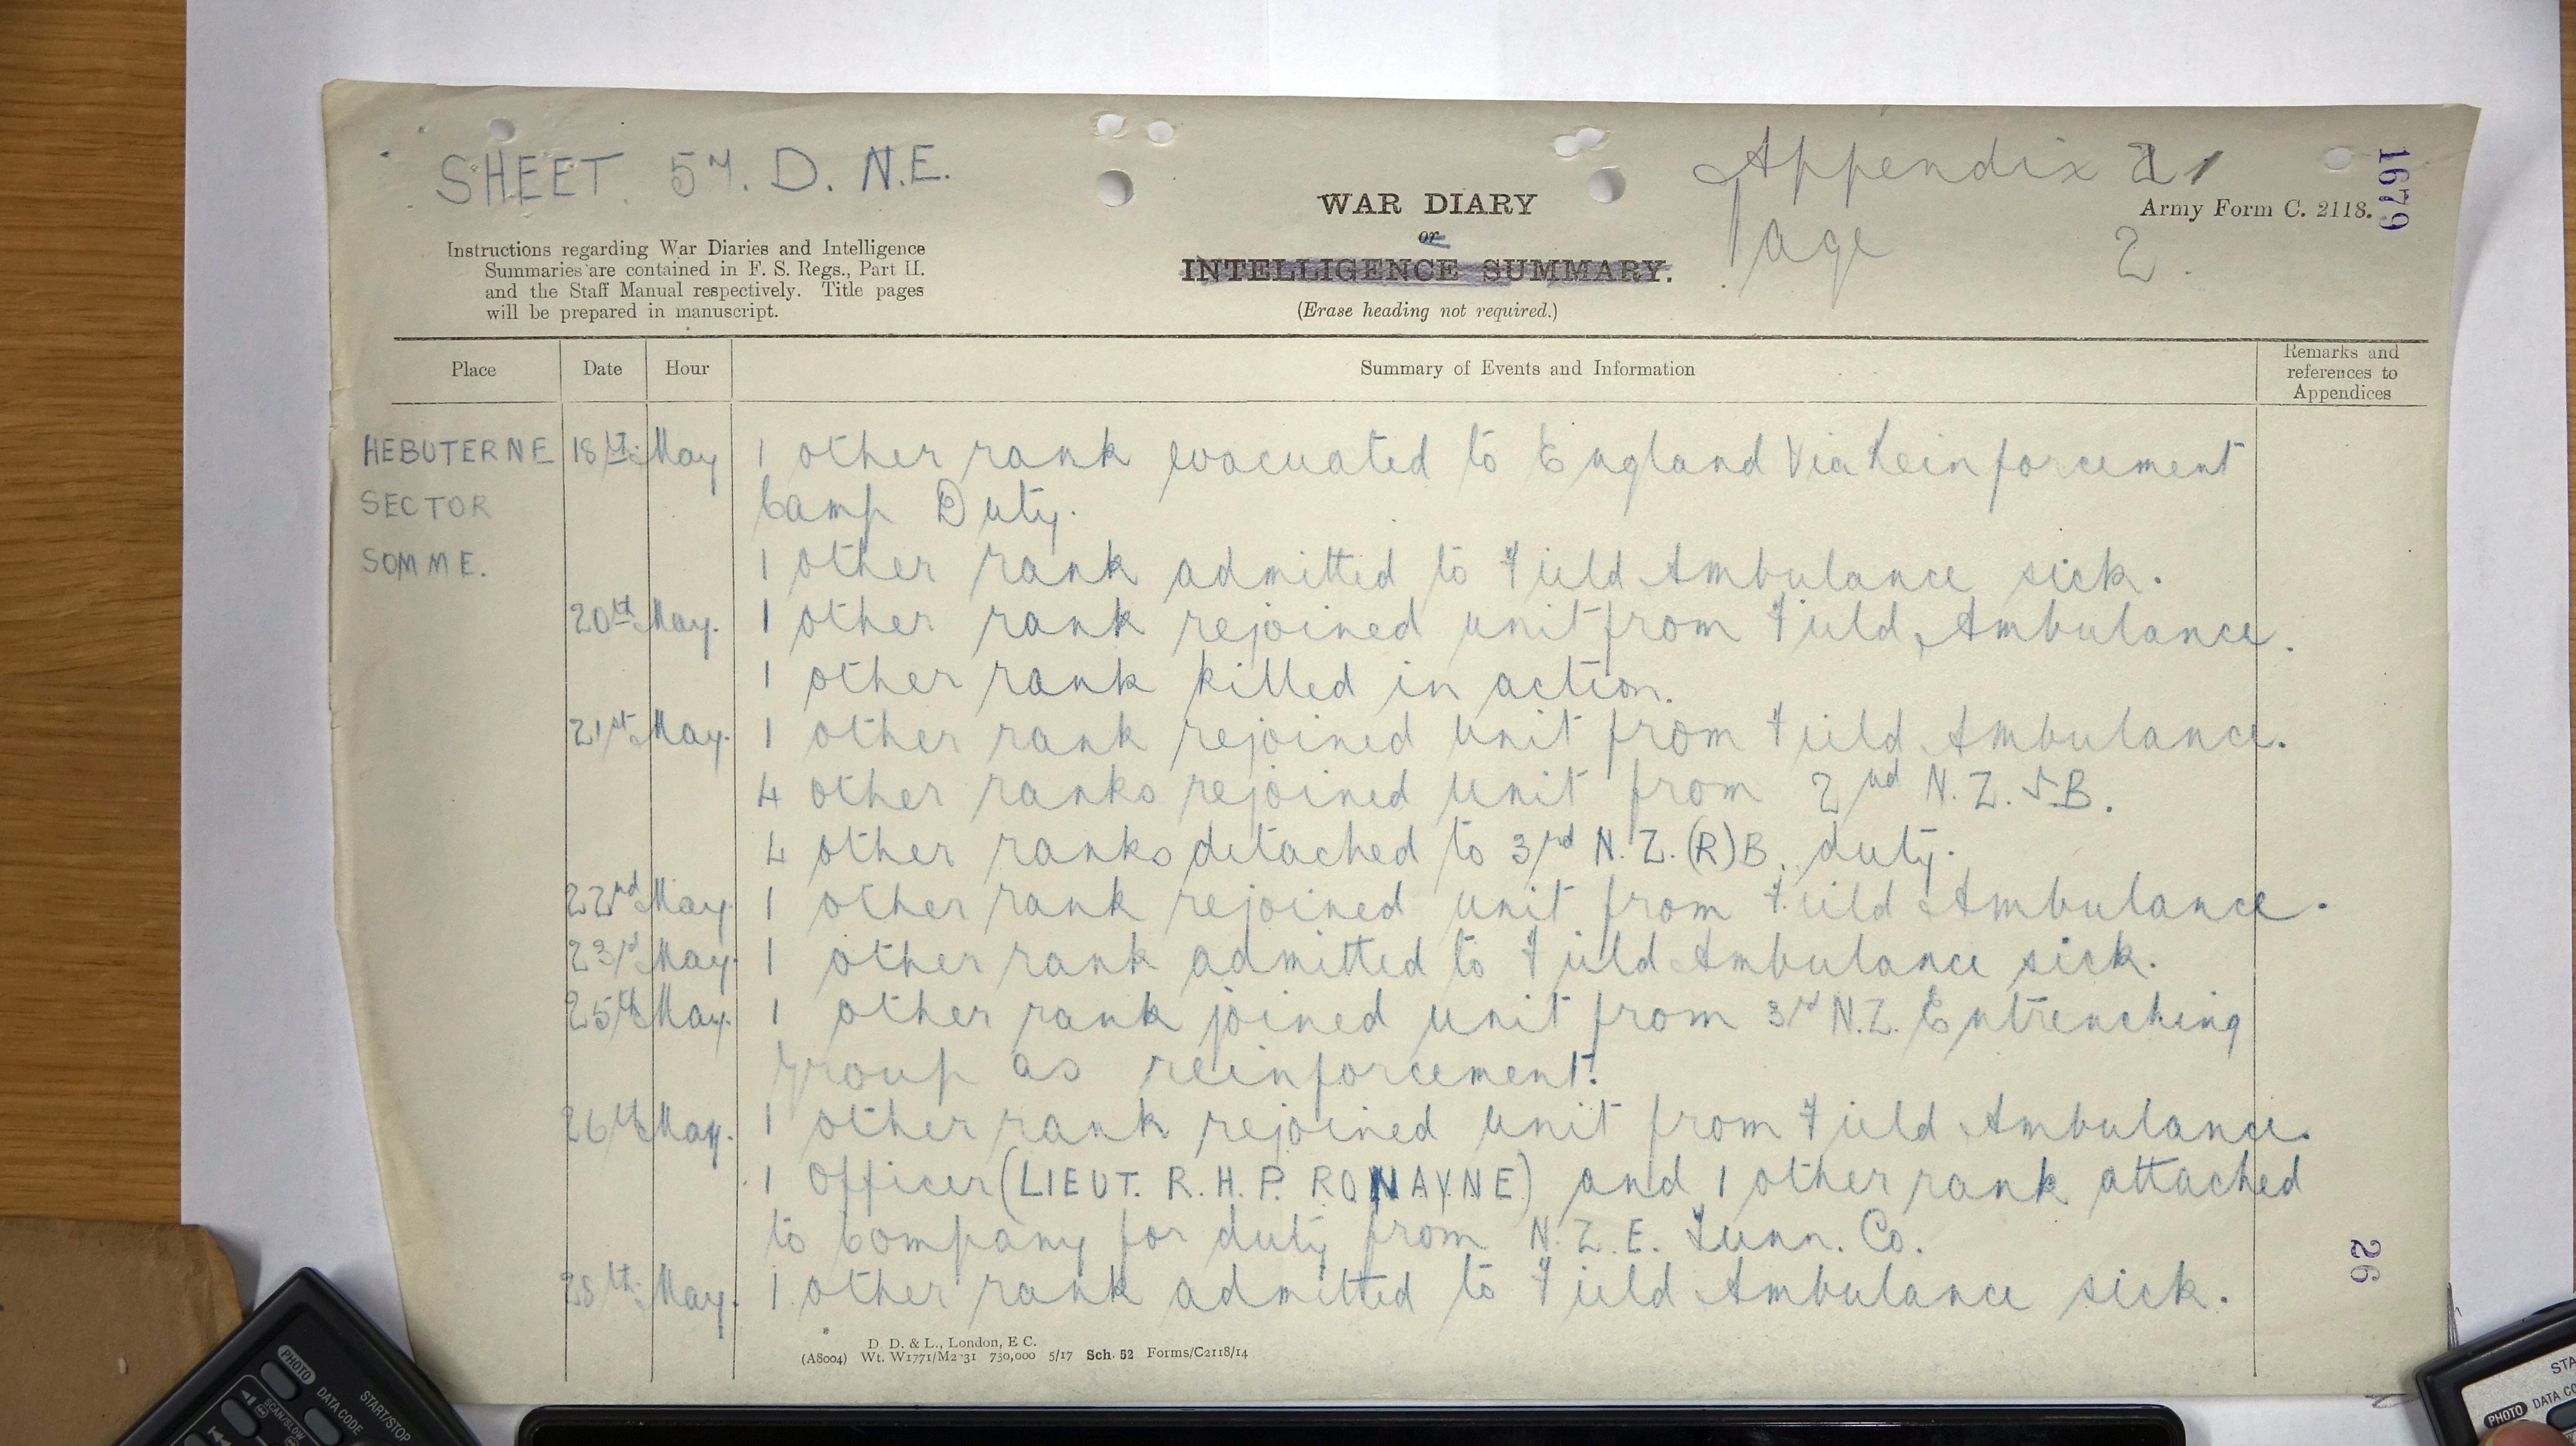 SHEET 57. D. N.E.
Appendix 1
1679
WAR DIARY
or
INTELLIGENCE SUMMARY.
(Erase heading not required.)
Army Form C. 2118.
Page 2.
Instructions regarding War Diaries and Intelligence
Summaries are contained in F. S. Regs., Part II.
and the Staff Manual respectively. Title pages
will be prepared in manuscript.
Place Date Hour Summary of Events and Information Remarks and references to Appendices
HEBUTERNE 18th May 1 other rank evacuated to England Via Reinforcement
SECTOR Camp Duty.
SOMME. 1 other rank admitted to Field Ambulance sick.
20th May. 1 other rank rejoined unit from Field Ambulance.
1 other rank killed in action.
21st May. 1 other rank rejoined unit from Field Ambulance.
4 other ranks rejoined unit from 2nd N.Z. I.B.
4 other ranks detached to 3rd N.Z.(R)B. duty.
22nd May. 1 other rank rejoined unit from Field Ambulance.
23rd May. 1 other rank admitted to Field Ambulance sick.
25th May. 1 other rank joined unit from 3rd N.Z. Entrenching
Group as reinforcement.
26th May. 1 other rank rejoined unit from Field Ambulance.
1 Officer (LIEUT. R. H. P. RONAYNE) and 1 other rank attached
to Company for duty from N.Z.E. Tunn. Co.
28th May. 1 other rank admitted to Field Ambulance sick.
26
D. D. & L., London, E C.
(A8004) Wt. W1771/M2 31 750,000 5/17 Sch. 52 Forms/C2118/14
PHOTO
DATA CODE
START/STOP
SCAN/SLOW
STA
PHOTO
DATA CO